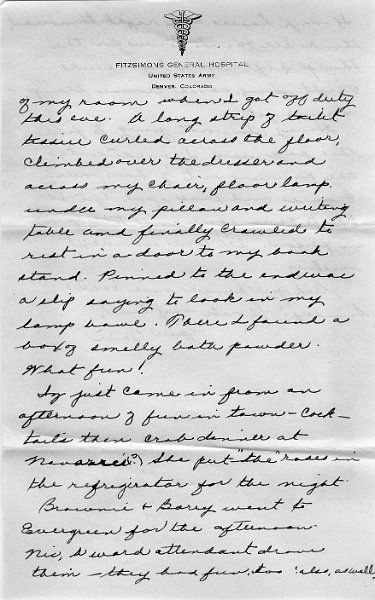 FITZSIMONS GENERAL HOSPITAL
UNITED STATES ARMY
DENVER, COLORADO
of my room when I got off duty
this eve. A long strip of toilet
tissue curled across the floor,
climbed over the dresser and
across my chair, floor lamp
under my pillow and writing
table and finally crawled to
rest in a door to my book
stand. Pinned to the end was
a slip saying to look in my
lamp bowl. There I found a
box of smelly bath powder.
What fun!
Izy just came in from an
afternoon of fun in town - Cock-
tails then crab dinner at
(?) She put "the" roses in
the refrigirator for the night.
Brownie & Barey went to
Evergreen for the afternoon.
Nic, a ward attendant drove
them - they had fun, too also, as well